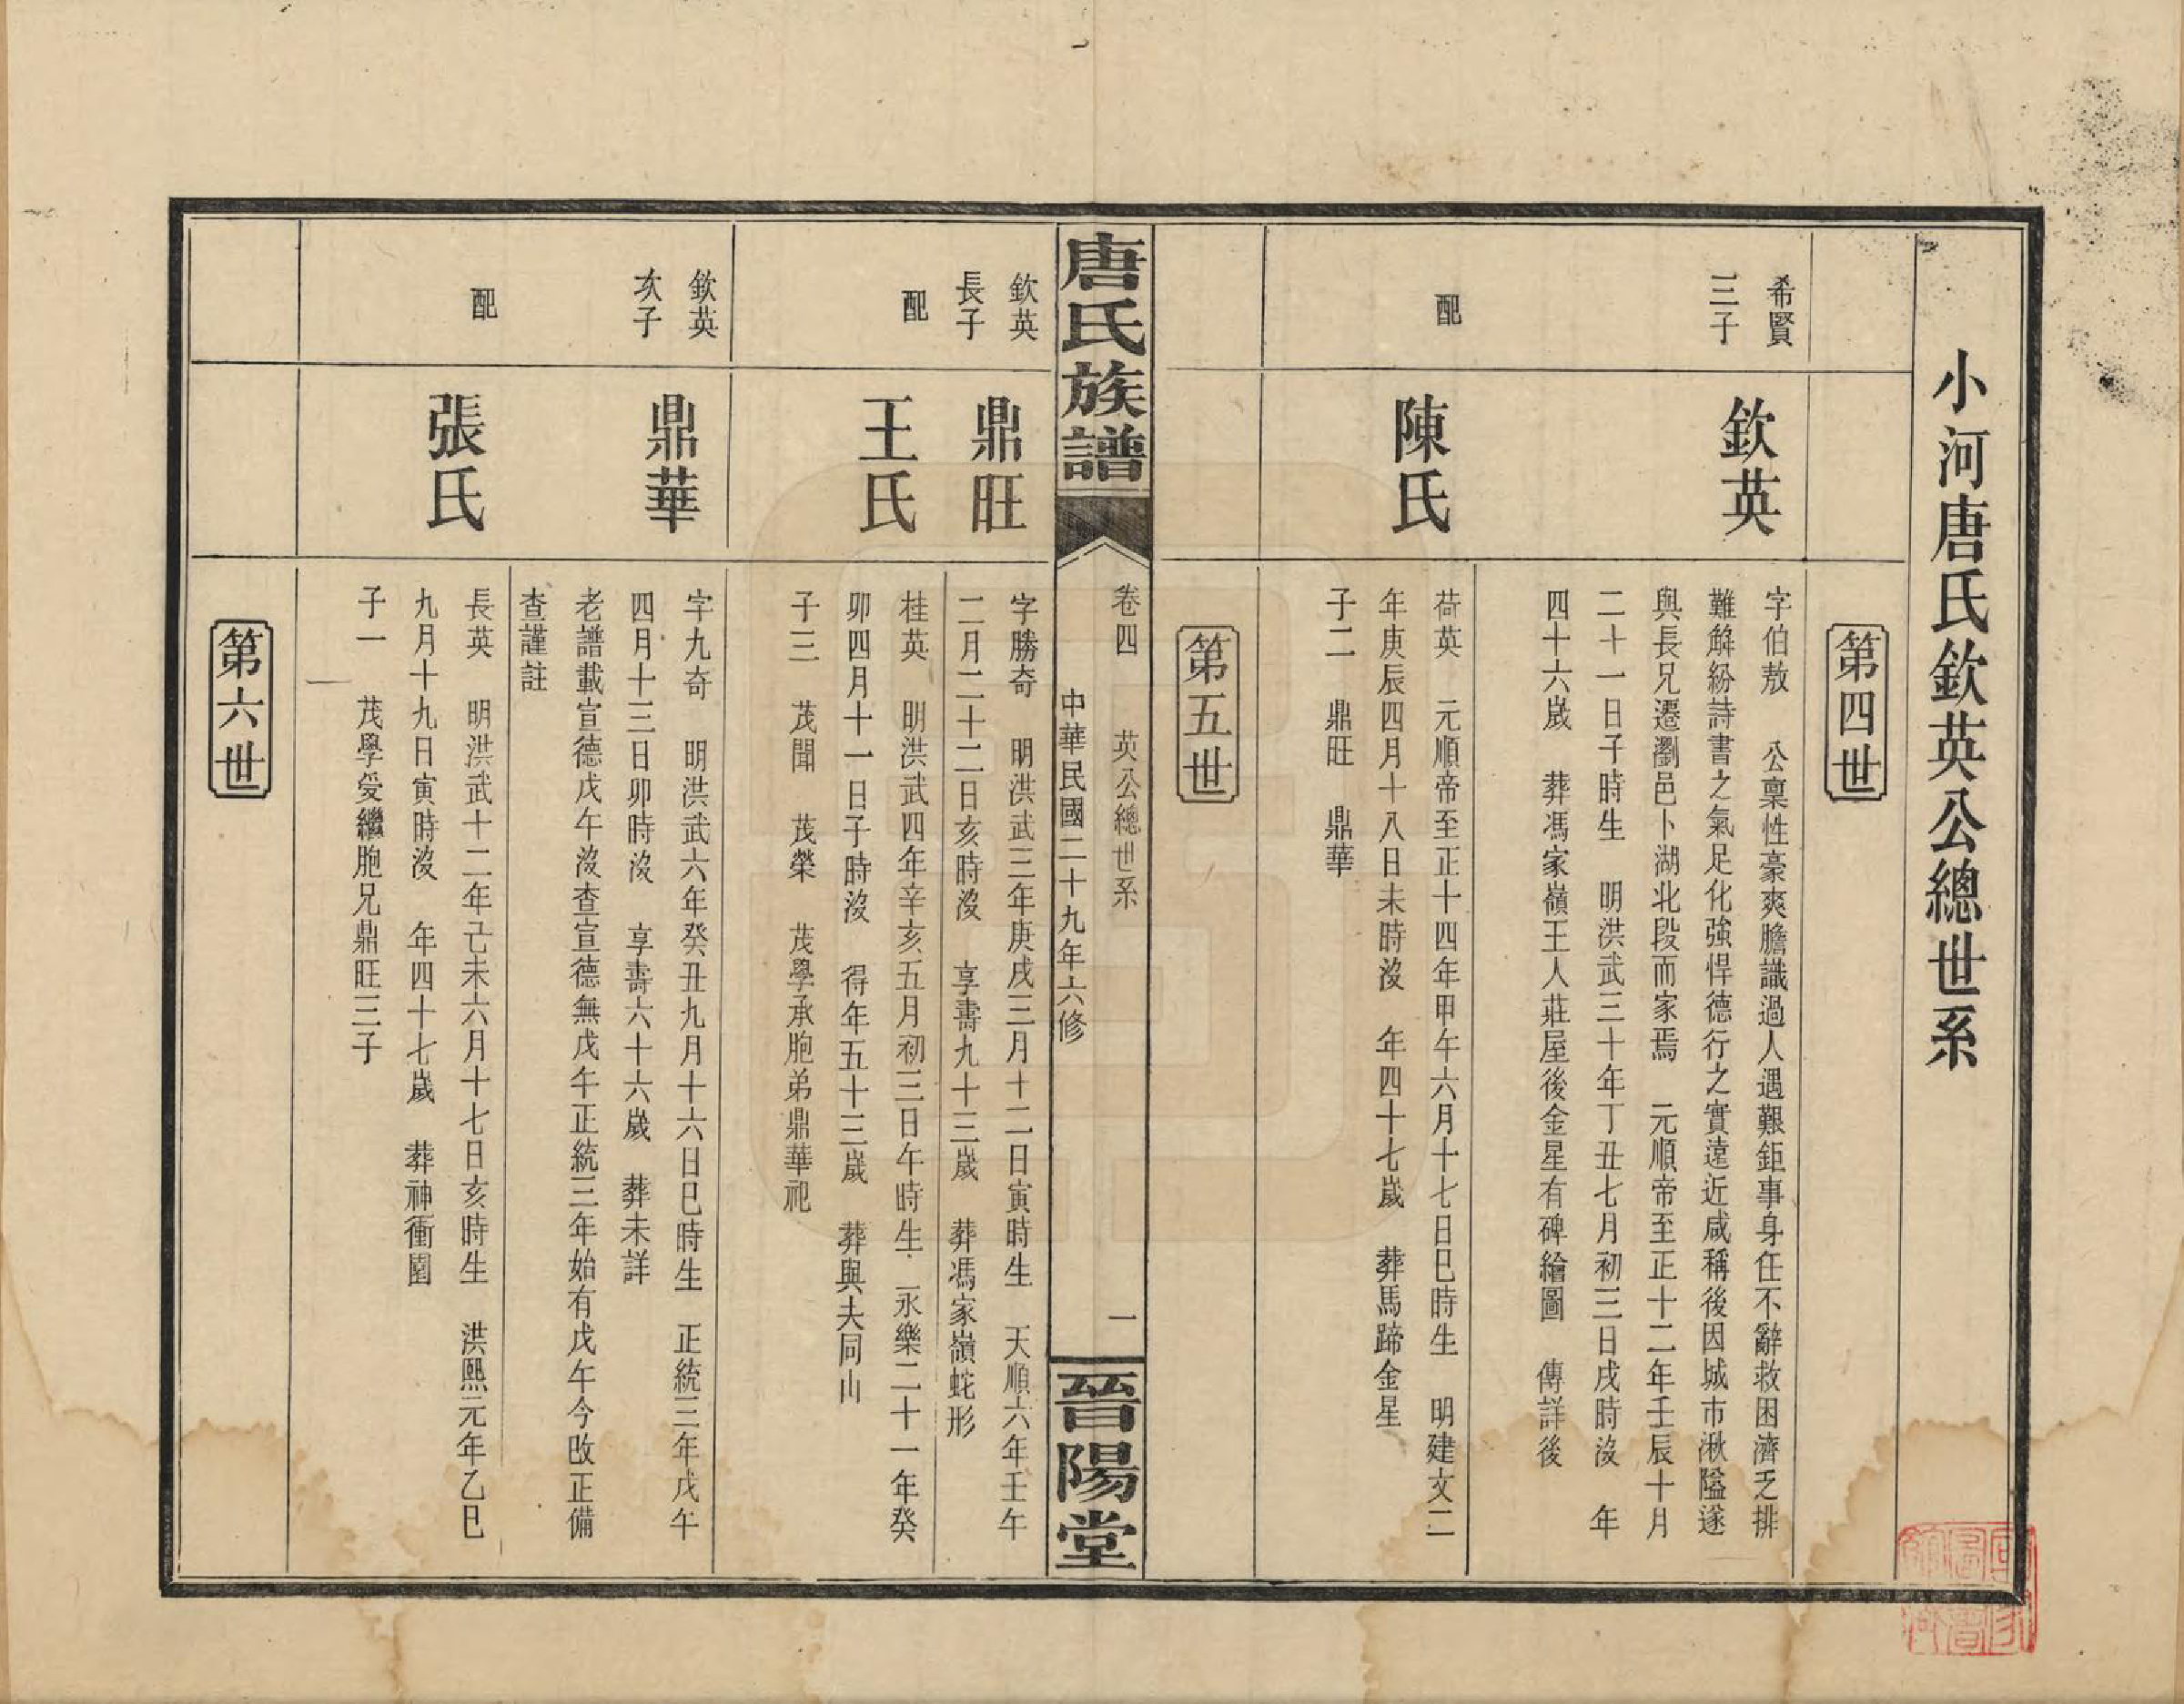 小河唐氏欽英公總世系
第四世
希賢
三子
欽英
字伯敖　公稟性豪爽膽識過人遇艱鉅事身任不辭救困濟乏排
難解紛詩書之氣足化強悍德行之實遠近咸稱後因城市湫隘遂
與長兄遷瀏邑卜湖北段而家焉　元順帝至正十二年壬辰十月
二十一日子時生　明洪武三十年丁丑七月初三日戌時沒　年
四十六歲　葬馮家嶺王人莊屋後金星有碑繪圖　傳詳後
配
陳氏
荷英　元順帝至正十四年甲午六月十七日巳時生　明建文二
年庚辰四月十八日未時沒　年四十七歲　葬馬蹄金星
子二　鼎旺　鼎華
第五世
唐氏族譜
卷四　英公總世系
一
中華民國二十九年六修
晉陽堂
欽英
長子
鼎旺
字勝奇　明洪武三年庚戌三月十二日寅時生　天順六年壬午
二月二十二日亥時沒　享壽九十三歲　葬馮家嶺蛇形
配
王氏
桂英　明洪武四年辛亥五月初三日午時生　永樂二十一年癸
卯四月十一日子時沒　得年五十三歲　葬與夫同山
子三　茂聞　茂榮　茂學承胞弟鼎華祀
欽英
次子
鼎華
字九奇　明洪武六年癸丑九月十六日巳時生　正統三年戊午
四月十三日卯時沒　享壽六十六歲　葬未詳
老譜載宣德戊午沒查宣德無戊午正統三年始有戊午今改正備
查謹註
配
張氏
長英　明洪武十二年己未六月十七日亥時生　洪熙元年乙巳
九月十九日寅時沒　年四十七歲　葬神衝園
子一　茂學受繼胞兄鼎旺三子
第六世